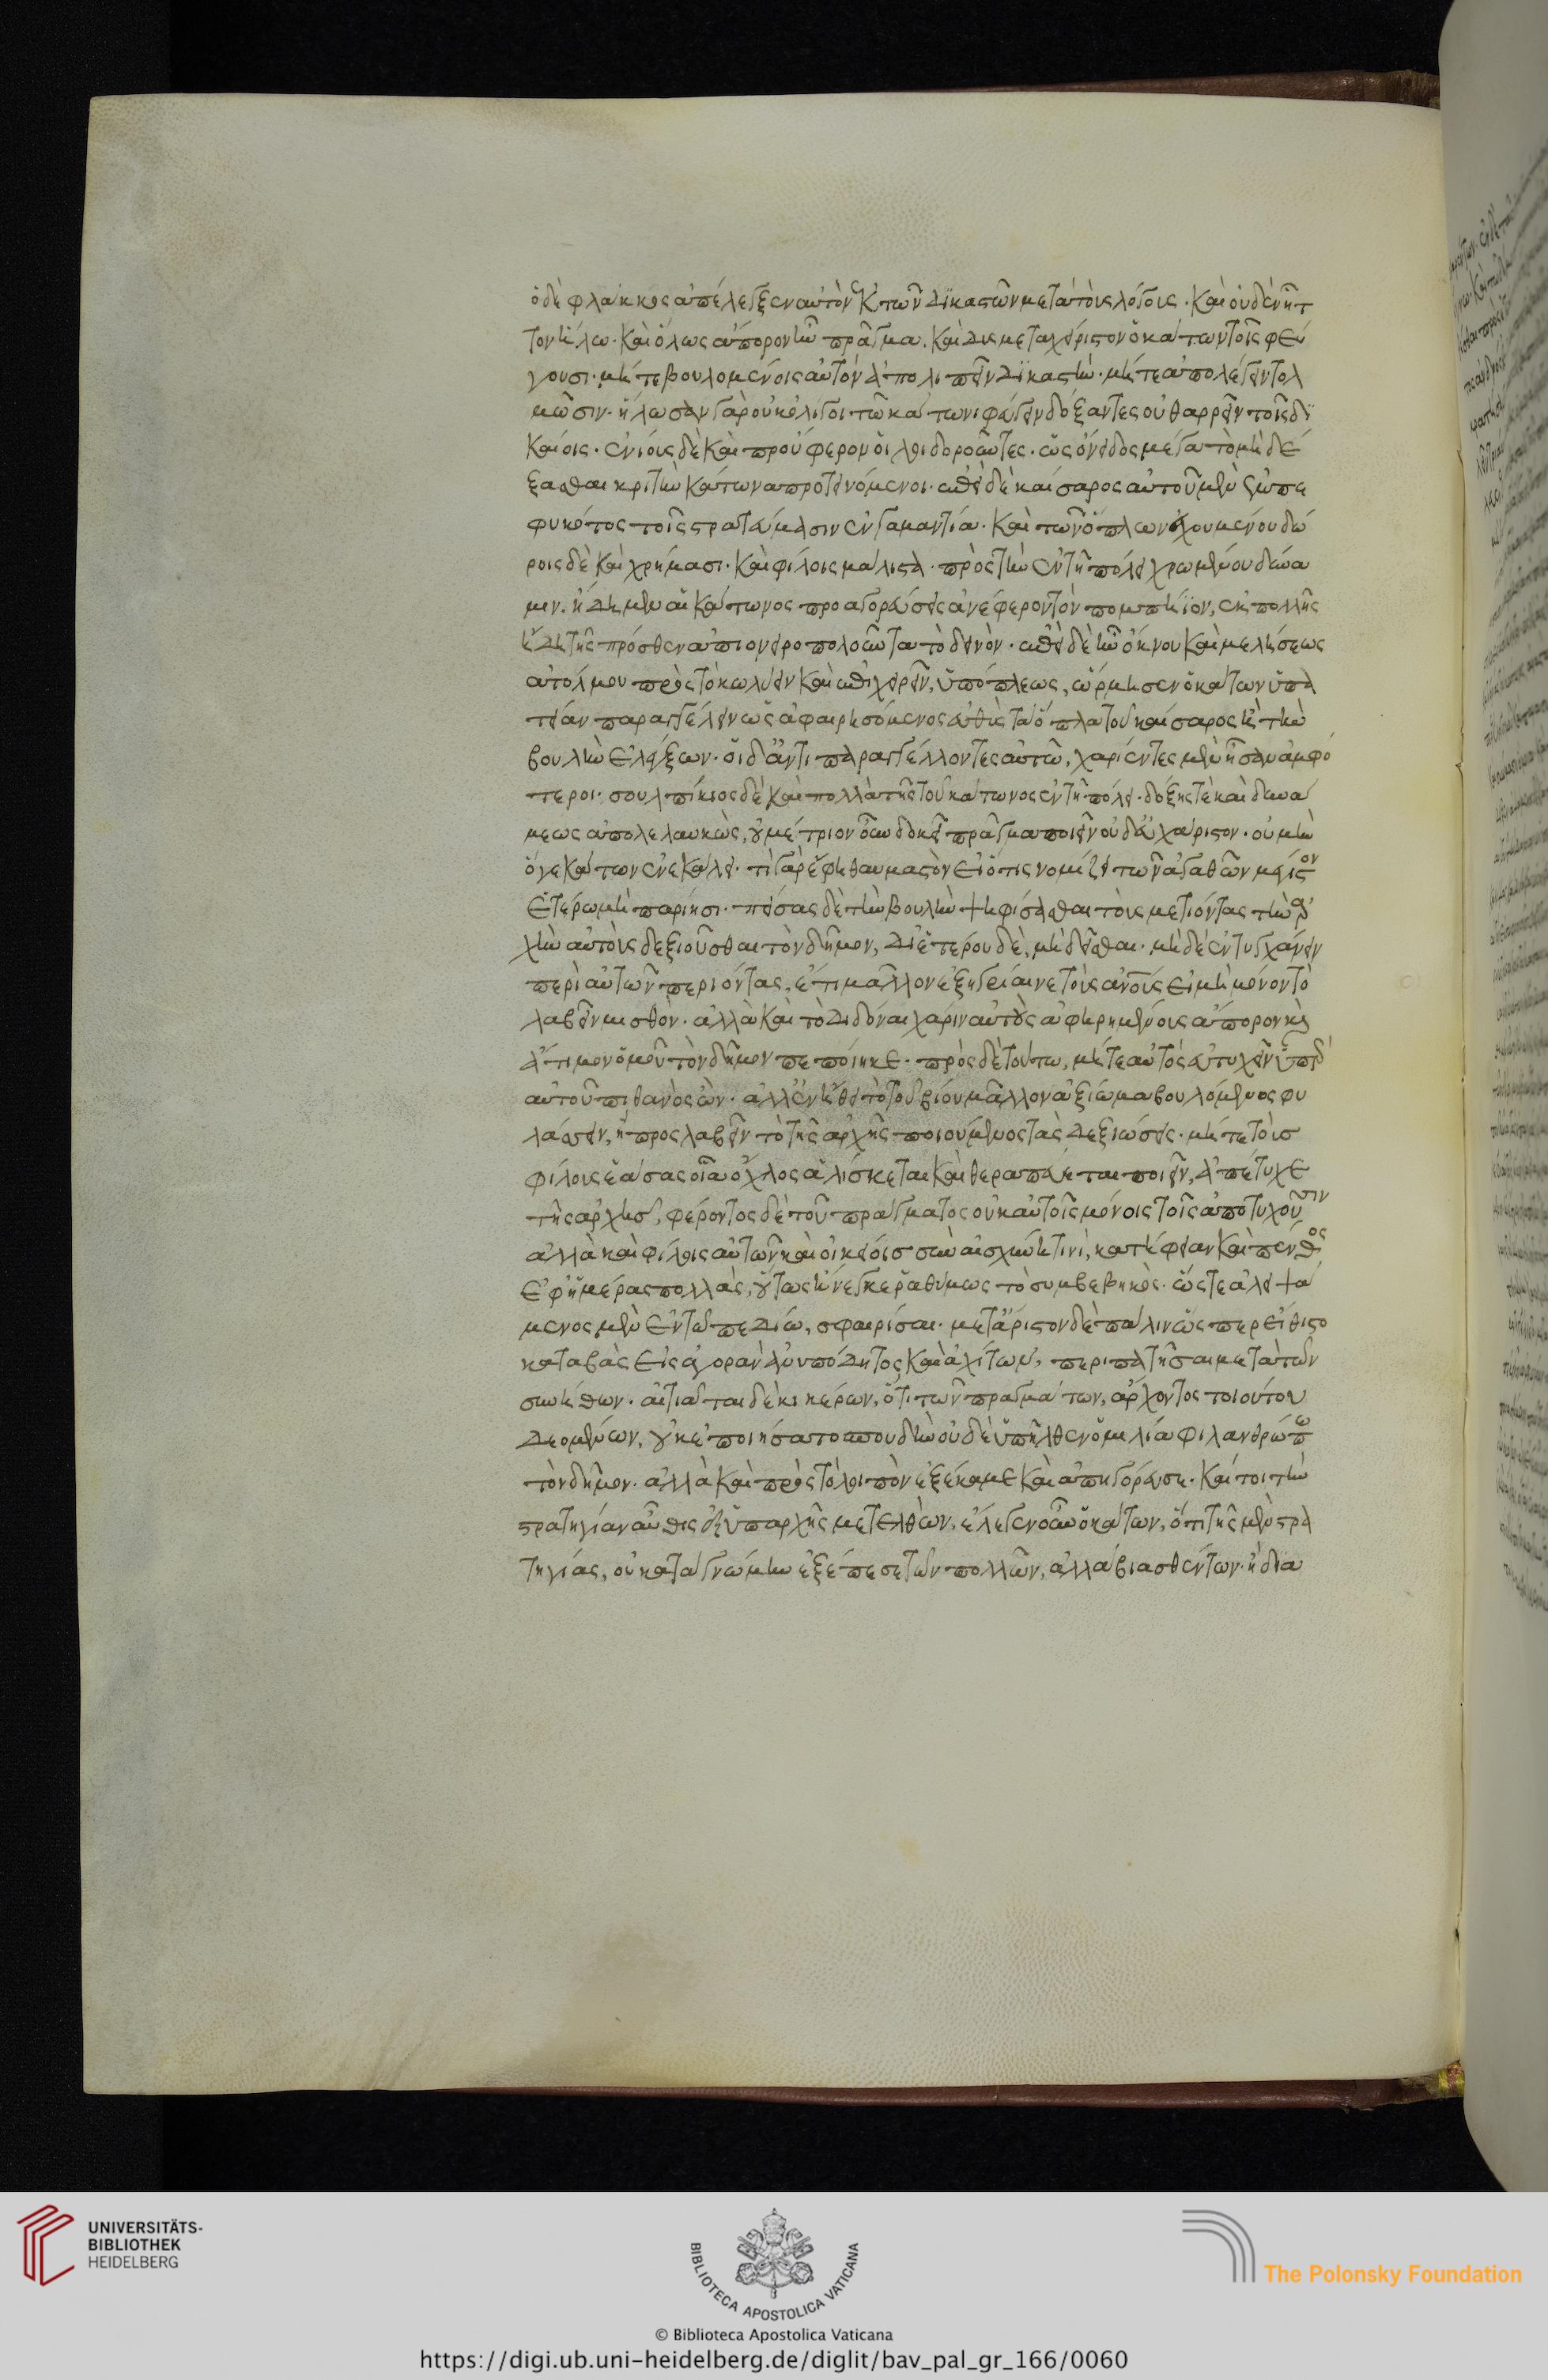 ὁ δὲ φλάκκος ἀπέλεξεν αὐτὸν ἐκ τῶν δικαστῶν μετὰ τοὺς λόγους· καὶ οὐδὲν ἧτ
τον ἥλω· καὶ ὅλως ἄπορον ἦν πρᾶγμα· καὶ δυσμεταχείριστον ὁ κάτων τοῖς φεύ
γουσι· μήτε βουλομένοις αὐτὸν ἀπολιπεῖν δικαστὴν· μήτε ἀπολέγειν τολ
μῶσιν· ἥλωσαν γὰρ οὐκ ὀλίγοι τῶ κάτωνι φεύγειν δόξαντες οὐ θαρρεῖν τοῖς δι
καίοις· ἐνίοις δὲ καὶ προύφερον οἱ λοιδοροῦντες· ὡς ὄνειδος μέγα τὸ μὴ δέ
ξασθαι κριτὴν κάτωνα προτεινόμενοι· ἐπεὶ δὲ καίσαρος αὐτοῦ μὲν ἐμπε
φυκότος τοῖς στρατεύμασιν ἐν γαμαντία· καὶ τῶν ὅπλων ἐχουμένου δώ
ροις δὲ καὶ χρήμασι· καὶ φίλοις μάλιστα· πρὸς τὴν ἐν τῆ πόλει χρωμένου δύνα
μιν· ἤδη μὲν αἱ κάτωνος προαγορεύσεις ἀνέφερον τὸν πομπήϊον, ἐκ πολλῆς
ἤδη τῆς πρόσθεν ἀπιον ειροπολοῦντα τὸ δεινὸν· ἐπεὶ δὲ ἦν ὄκνου καὶ μελήσεως
ἀτόλμου πρὸς τὸ κωλύειν καὶ ἐπιχειρεῖν, ὑπόπλεως, ὥρμησεν ὁ κάτων ὑπα
τείαν παραγγέλειν ὡς ἀφαιρησόμενος εὐθὺς τὰ ὅπλα τοῦ καίσαρος ἢ τὴν
βουλὴν ἐλέγξων· οἱ δ' ἀντιπαραγγέλλοντες αὐτῶ, χαρίεντες μὲν ἦσαν ἀμφό
τεροι· σουλπίκιος δὲ καὶ πολλὰ τῆς τοῦ κάτωνος ἐν τῆ πόλει· δόξης τὲ καὶ δυνά
μεως ἀπολελαυκὼς, οὐ μέτριον οὖν δοκεῖ πρᾶγμα ποιεῖν οὐδ' εὐχάριστον· οὐ μὴν
ὅ γε κάτων ἐνεκάλει· τί γὰρ ἔφη θαυμαστὸν εἰ ὅ τις νομίζει τῶν ἀγαθῶν μέγιστον
ἑτέρω μὴ παρίησι· πείσας δὲ τὴν βουλὴν ψηφίσασθαι τοὺς μετιόντας τὴν ἀρ
χὴν αὐτοὺς δεξιοῦσθαι τὸν δῆμον, δι' ἑτέρου δὲ, μὴ δεῖσθαι· μὴ δὲ ἐντυγχάνειν
περὶ αὐτῶν περιόντας, ἔτι μᾶλλον ἐξηγρίαινε τοὺς ἀνους εἰ μὴ μόνον τὸ
λαβεῖν μισθὸν· ἀλλὰ καὶ τὸ διδόναι χάριν αὐτοὺς ἀφηρημένους ἄπορον καὶ
ἄτιμον ὁμοῦ τὸν δῆμον πεποίηκε· πρὸς δὲ τούτω, μήτε αὐτὸς ἐντυχεῖν ὑπὲρ
αὐτοῦ πιθανὸς ὢν· ἀλλ' ἐν ἤθει τὸ τοῦ βίου μᾶλλον ἀξίωμα βουλόμενος φυ
λάσσειν, ἢ προσλαβεῖν τὸ τῆς ἀρχῆς ποιούμενος τὰς δεξιώσεις· μήτε τοὺς
φίλους ἐάσας οἷα ὄχλος ἁλίσκεται καὶ θεραπεύεται ποιεῖν, ἀπέτυχε
τῆς ἀρχῆς, φέροντος δὲ τοῦ πράγματος οὐκ αὐτοῖς μόνοις τοῖς ἀποτυχοῦσιν
ἀλλὰ καὶ φίλοις αὐτῶν καὶ οἰκείοις σὺν αἰσχύνη τινὶ, κατήφειαν καὶ πένθος
ἐφ' ἡμέρας πολλὰς, οὕτως ἤνεγκε ῥαθύμως τὸ συμβεβηκὸς· ὥστε ἀλειψά
μενος μὲν ἐν τῶ πεδίω, σφαιρίσαι· μετ' ἄριστον δὲ πάλιν ὥσπερ εἴθιστο
καταβὰς εἰς ἀγορὰν ἀνυπόδητος καὶ ἀχίτων, περιπατῆσαι μετὰ τῶν
συνήθων· αἰτιᾶται δὲ κικέρων, ὅτι τῶν πραγμάτων, ἄρχοντος τοιούτου
δεομένων, οὐκ ἐποιήσατο σπουδὴν οὐδὲ ὑπῆλθεν ὁμιλία φιλανθρώπω
τὸν δῆμον· ἀλλὰ καὶ πρὸς τὸ λοιπὸν ἐξέκαμε καὶ ἀπηγόρευσε· καίτοι τὴν
στρατηγίαν αὖθις ἐξ ὑπαρχῆς μετελθὼν, ἔλεγεν οὖν ὁ κάτων, ὅτι τῆς μὲν στρα
τηγίας, οὐ κατὰ γνώμην ἐξέπεσε τῶν πολλῶν, ἀλλὰ βιασθέντων· ἢ δια
UNIVERSITÄTS-
BIBLIOTHEK
HEIDELBERG
BIBLIOTECA APOSTOLICA VATICANA
The Polonsky Foundation
© Biblioteca Apostolica Vaticana
https://digi.ub.uni-heidelberg.de/diglit/bav_pal_gr_166/0060